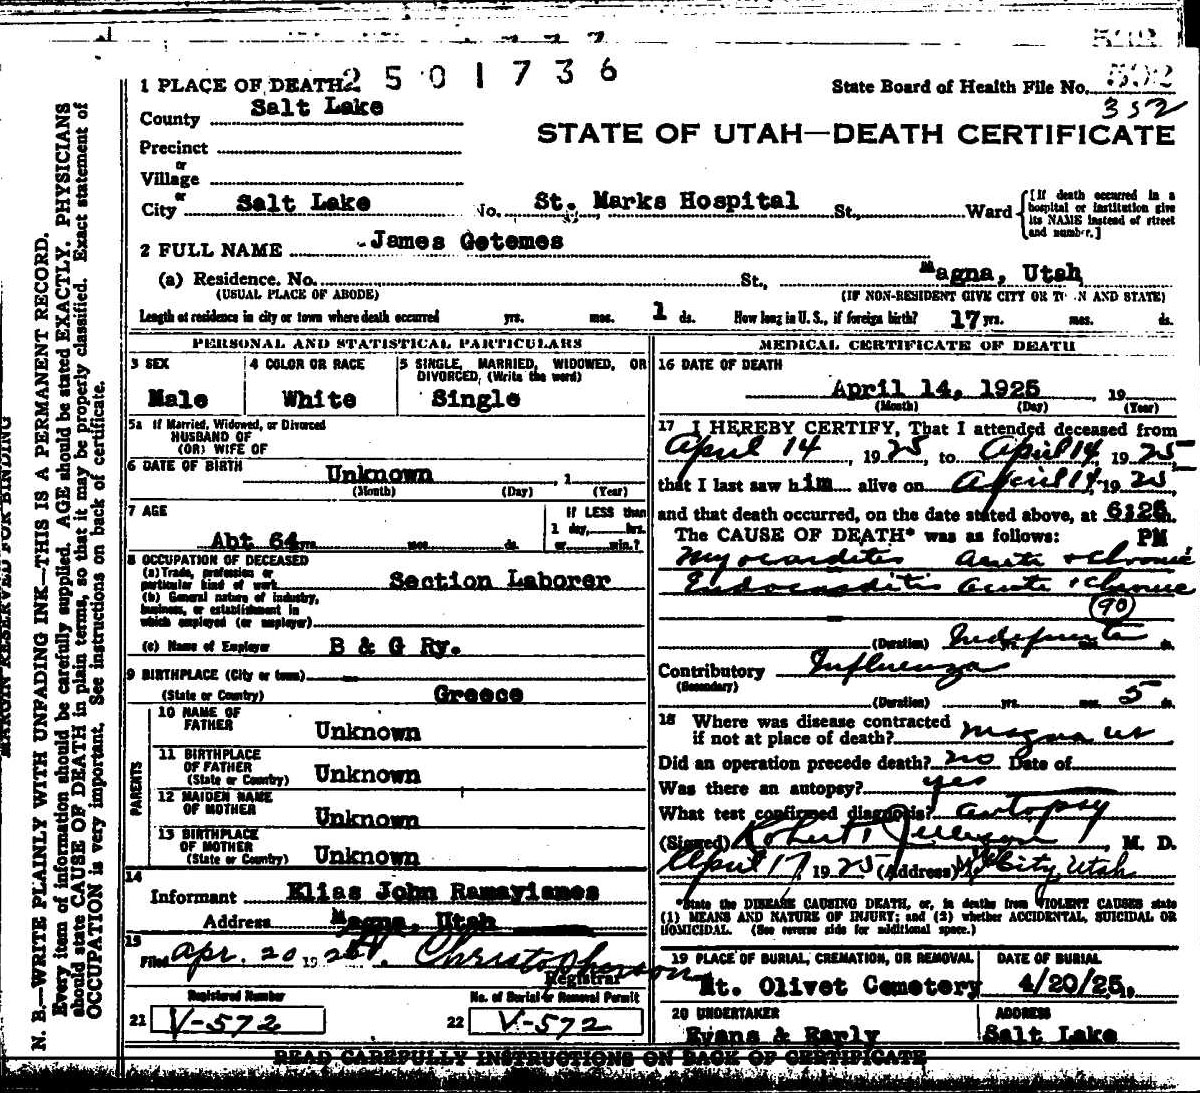 2501736
1 PLACE OF DEATH
State Board of Health File No. 592
352
County Salt Lake
STATE OF UTAH—DEATH CERTIFICATE
Precinct
or
Village
or
City Salt Lake No. St. Marks Hospital St., Ward [If death occurred in a hospital or institution give its NAME instead of street and number.]
2 FULL NAME James Getemes
(a) Residence. No. St., Magna, Utah
(USUAL PLACE OF ABODE) (IF NON-RESIDENT GIVE CITY OR AND STATE)
Length of residence in city or town where death occurred yrs. mos. 1 ds. How long in U. S., if foreign birth? 17 yrs. mos. ds.
PERSONAL AND STATISTICAL PARTICULARS
3 SEX 4 COLOR OR RACE 5 SINGLE, MARRIED, WIDOWED, OR DIVORCED, (Write the word)
Male White Single
5a If Married, Widowed, or Divorced
HUSBAND OF
(OR) WIFE OF
6 DATE OF BIRTH Unknown , 1
(Month) (Day) (Year)
7 AGE IF LESS than
1 day, hrs.
Abt 64 yrs. mos. ds. or min.?
8 OCCUPATION OF DECEASED
(a) Trade, profession or
particular kind of work Section Laborer
(b) General nature of industry,
business, or establishment in
which employed (or employer)
(c) Name of Employer B & G Ry.
9 BIRTHPLACE (City or town)
(State or Country) Greece
PARENTS
10 NAME OF
FATHER Unknown
11 BIRTHPLACE
OF FATHER
(State or Country) Unknown
12 MAIDEN NAME
OF MOTHER Unknown
13 BIRTHPLACE
OF MOTHER
(State or Country) Unknown
14
Informant Elias John Ramayianes
Address Magna, Utah
15
Filed Apr. 20 1925 Christopherson
Registrar
Registered Number No. of Burial or Removal Permit
21 V-572 22 V-572
MEDICAL CERTIFICATE OF DEATH
16 DATE OF DEATH
April 14, 1925 19
(Month) (Day) (Year)
17 I HEREBY CERTIFY, That I attended deceased from
April 14, 1925, to April 14, 1925
that I last saw him alive on April 14, 1925,
and that death occurred, on the date stated above, at 6:25 m.
The CAUSE OF DEATH* was as follows: PM
Myocarditis Acute + Chronic
Endocarditis Acute + Chronic
90
(Duration) Indefinite ds.
Contributory Influenza
(Secondary)
(Duration) yrs. mos. 5 ds.
18 Where was disease contracted
if not at place of death? Magna Ut
Did an operation precede death? no Date of
Was there an autopsy? yes
What test confirmed diagnosis? autopsy
(Signed) Robert , M. D.
April 17, 1925 (Address) City, Utah
*State the DISEASE CAUSING DEATH, or, in deaths from VIOLENT CAUSES state
(1) MEANS AND NATURE OF INJURY; and (2) whether ACCIDENTAL, SUICIDAL OR
HOMICIDAL. (See reverse side for additional space.)
19 PLACE OF BURIAL, CREMATION, OR REMOVAL DATE OF BURIAL
Mt. Olivet Cemetery 4/20/25.
20 UNDERTAKER ADDRESS
Evans & Early Salt Lake
READ CAREFULLY INSTRUCTIONS ON BACK OF CERTIFICATE
MARGIN RESERVED FOR BINDING
N. B.—WRITE PLAINLY WITH UNFADING INK—THIS IS A PERMANENT RECORD.
Every item of information should be carefully supplied. AGE should be stated EXACTLY. PHYSICIANS
should state CAUSE OF DEATH in plain terms, so that it may be properly classified. Exact statement of
OCCUPATION is very important. See instructions on back of certificate.